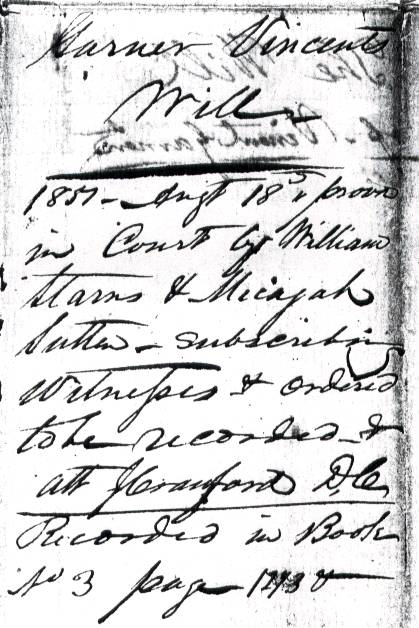 Garner Vincents
Will
1851 - Augt 18th proven
in Court by William
Starns & Micajah
Sutten - subscribing
Witnesses & ordered
to be recorded &
att J Crawford D.C.
Recorded in Book
No 3 page